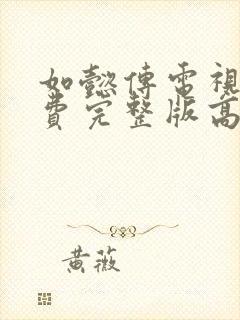 如懿傳電視
費完整版高
黃薇